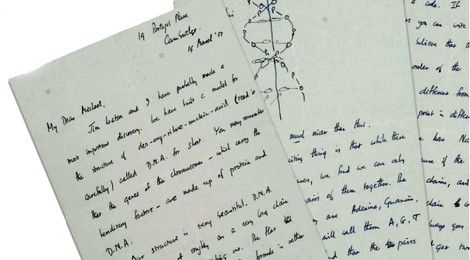 19 Portugal Place
Cambridge.
My Dear Michael,
Jim Watson and I have probably made a
most important discovery. We have built a model for
the structure of des-oxy-ribose-nucleic-acid (read it
carefully) called D.N.A. for short. You may remember
that the genes of the chromosomes – which carry the
hereditary factors – are made up of protein and
D.N.A.
Our structure is very beautiful. D.N.A.
of roughly as a very long chain
sticking out. The flat bits
much nicer than this.
citing thing is that while there
we find we can only
pairs of them together. The
are Adenine, Guanine,
will call them A, G, T
that the pairs
a code. If
you can write
believe that the
order of the
different from
print is different
how
if the
chains, and
chain
goes
get two